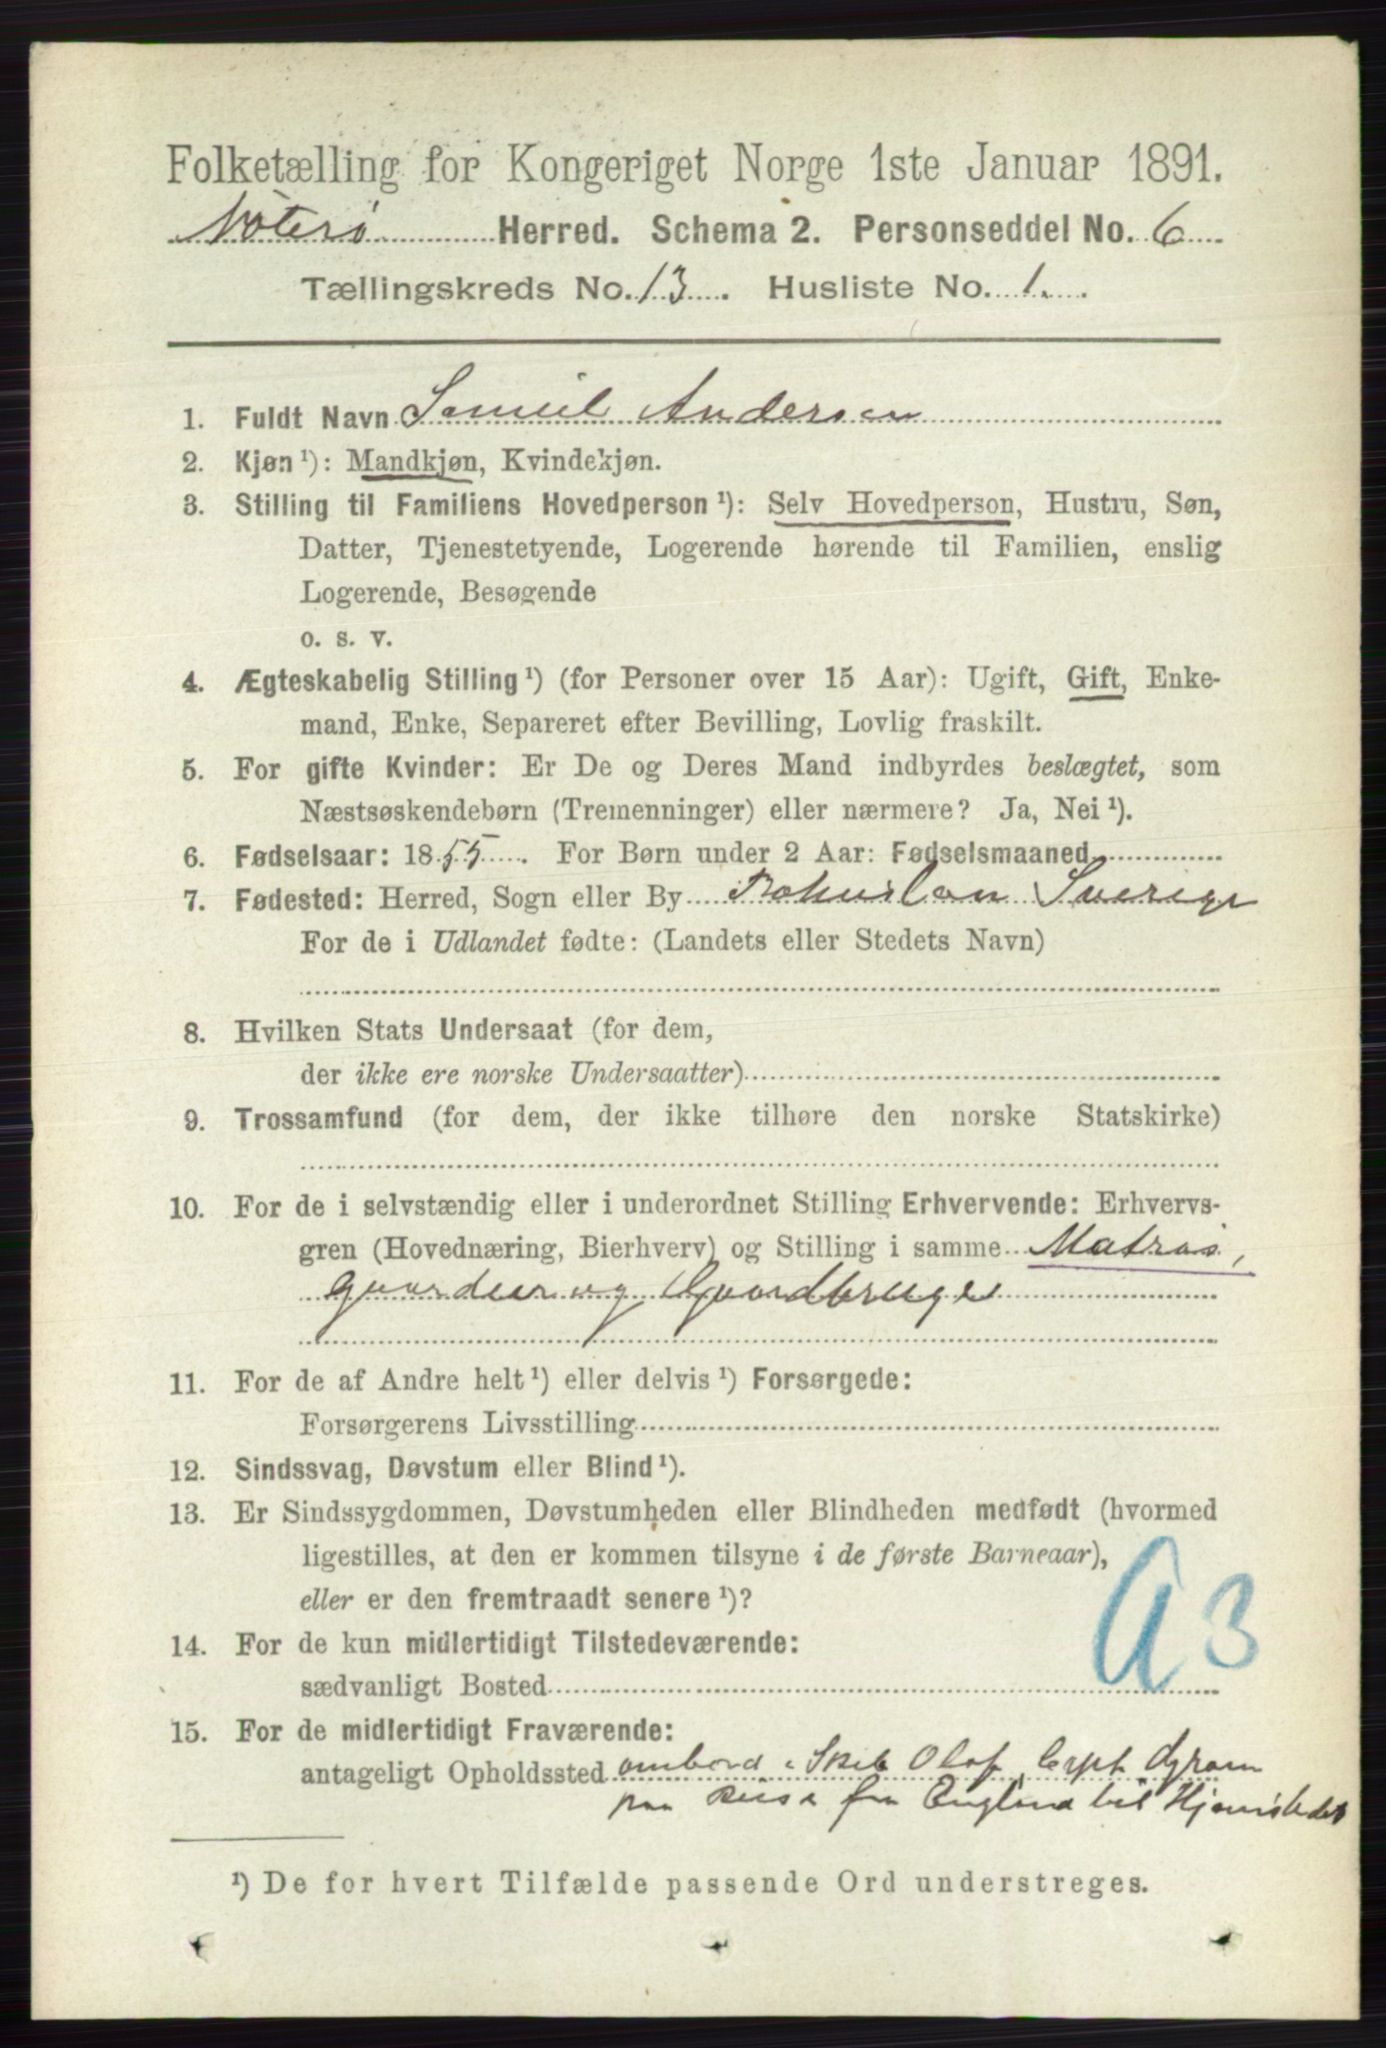 Folketælling for Kongeriget Norge 1ste Januar 1891.
Nøterø Herred. Schema 2. Personseddel No. 6
Tællingskreds No. 13. Husliste No. 1.
1. Fuldt Navn Samuel Andersen
2. Kjøn ¹): Mandkjøn, Kvindekjøn.
3. Stilling til Familiens Hovedperson ¹): Selv Hovedperson, Hustru, Søn,
Datter, Tjenestetyende, Logerende hørende til Familien, enslig
Logerende, Besøgende
o. s. v.
4. Ægteskabelig Stilling ¹) (for Personer over 15 Aar): Ugift, Gift, Enke-
mand, Enke, Separeret efter Bevilling, Lovlig fraskilt.
5. For gifte Kvinder: Er De og Deres Mand indbyrdes beslægtet, som
Næstsøskendebørn (Tremenninger) eller nærmere? Ja, Nei ¹).
6. Fødselsaar: 1855. For Børn under 2 Aar: Fødselsmaaned
7. Fødested: Herred, Sogn eller By Bohuslan Sverige
For de i Udlandet fødte: (Landets eller Stedets Navn)
8. Hvilken Stats Undersaat (for dem,
der ikke ere norske Undersaatter)
9. Trossamfund (for dem, der ikke tilhøre den norske Statskirke)
10. For de i selvstændig eller i underordnet Stilling Erhvervende: Erhvervs-
gren (Hovednæring, Bierhverv) og Stilling i samme Matros,
gaardeier og Gaardbruger
11. For de af Andre helt ¹) eller delvis ¹) Forsørgede:
Forsørgerens Livsstilling
12. Sindssvag, Døvstum eller Blind ¹).
13. Er Sindssygdommen, Døvstumheden eller Blindheden medfødt (hvormed
ligestilles, at den er kommen tilsyne i de første Barneaar),
eller er den fremtraadt senere ¹)?
14. For de kun midlertidigt Tilstedeværende:
sædvanligt Bosted
A 3
15. For de midlertidigt Fraværende:
antageligt Opholdssted ombord i Skib Olaf, Capt.
paa Reise fra England til Hjemstedet
¹) De for hvert Tilfælde passende Ord understreges.